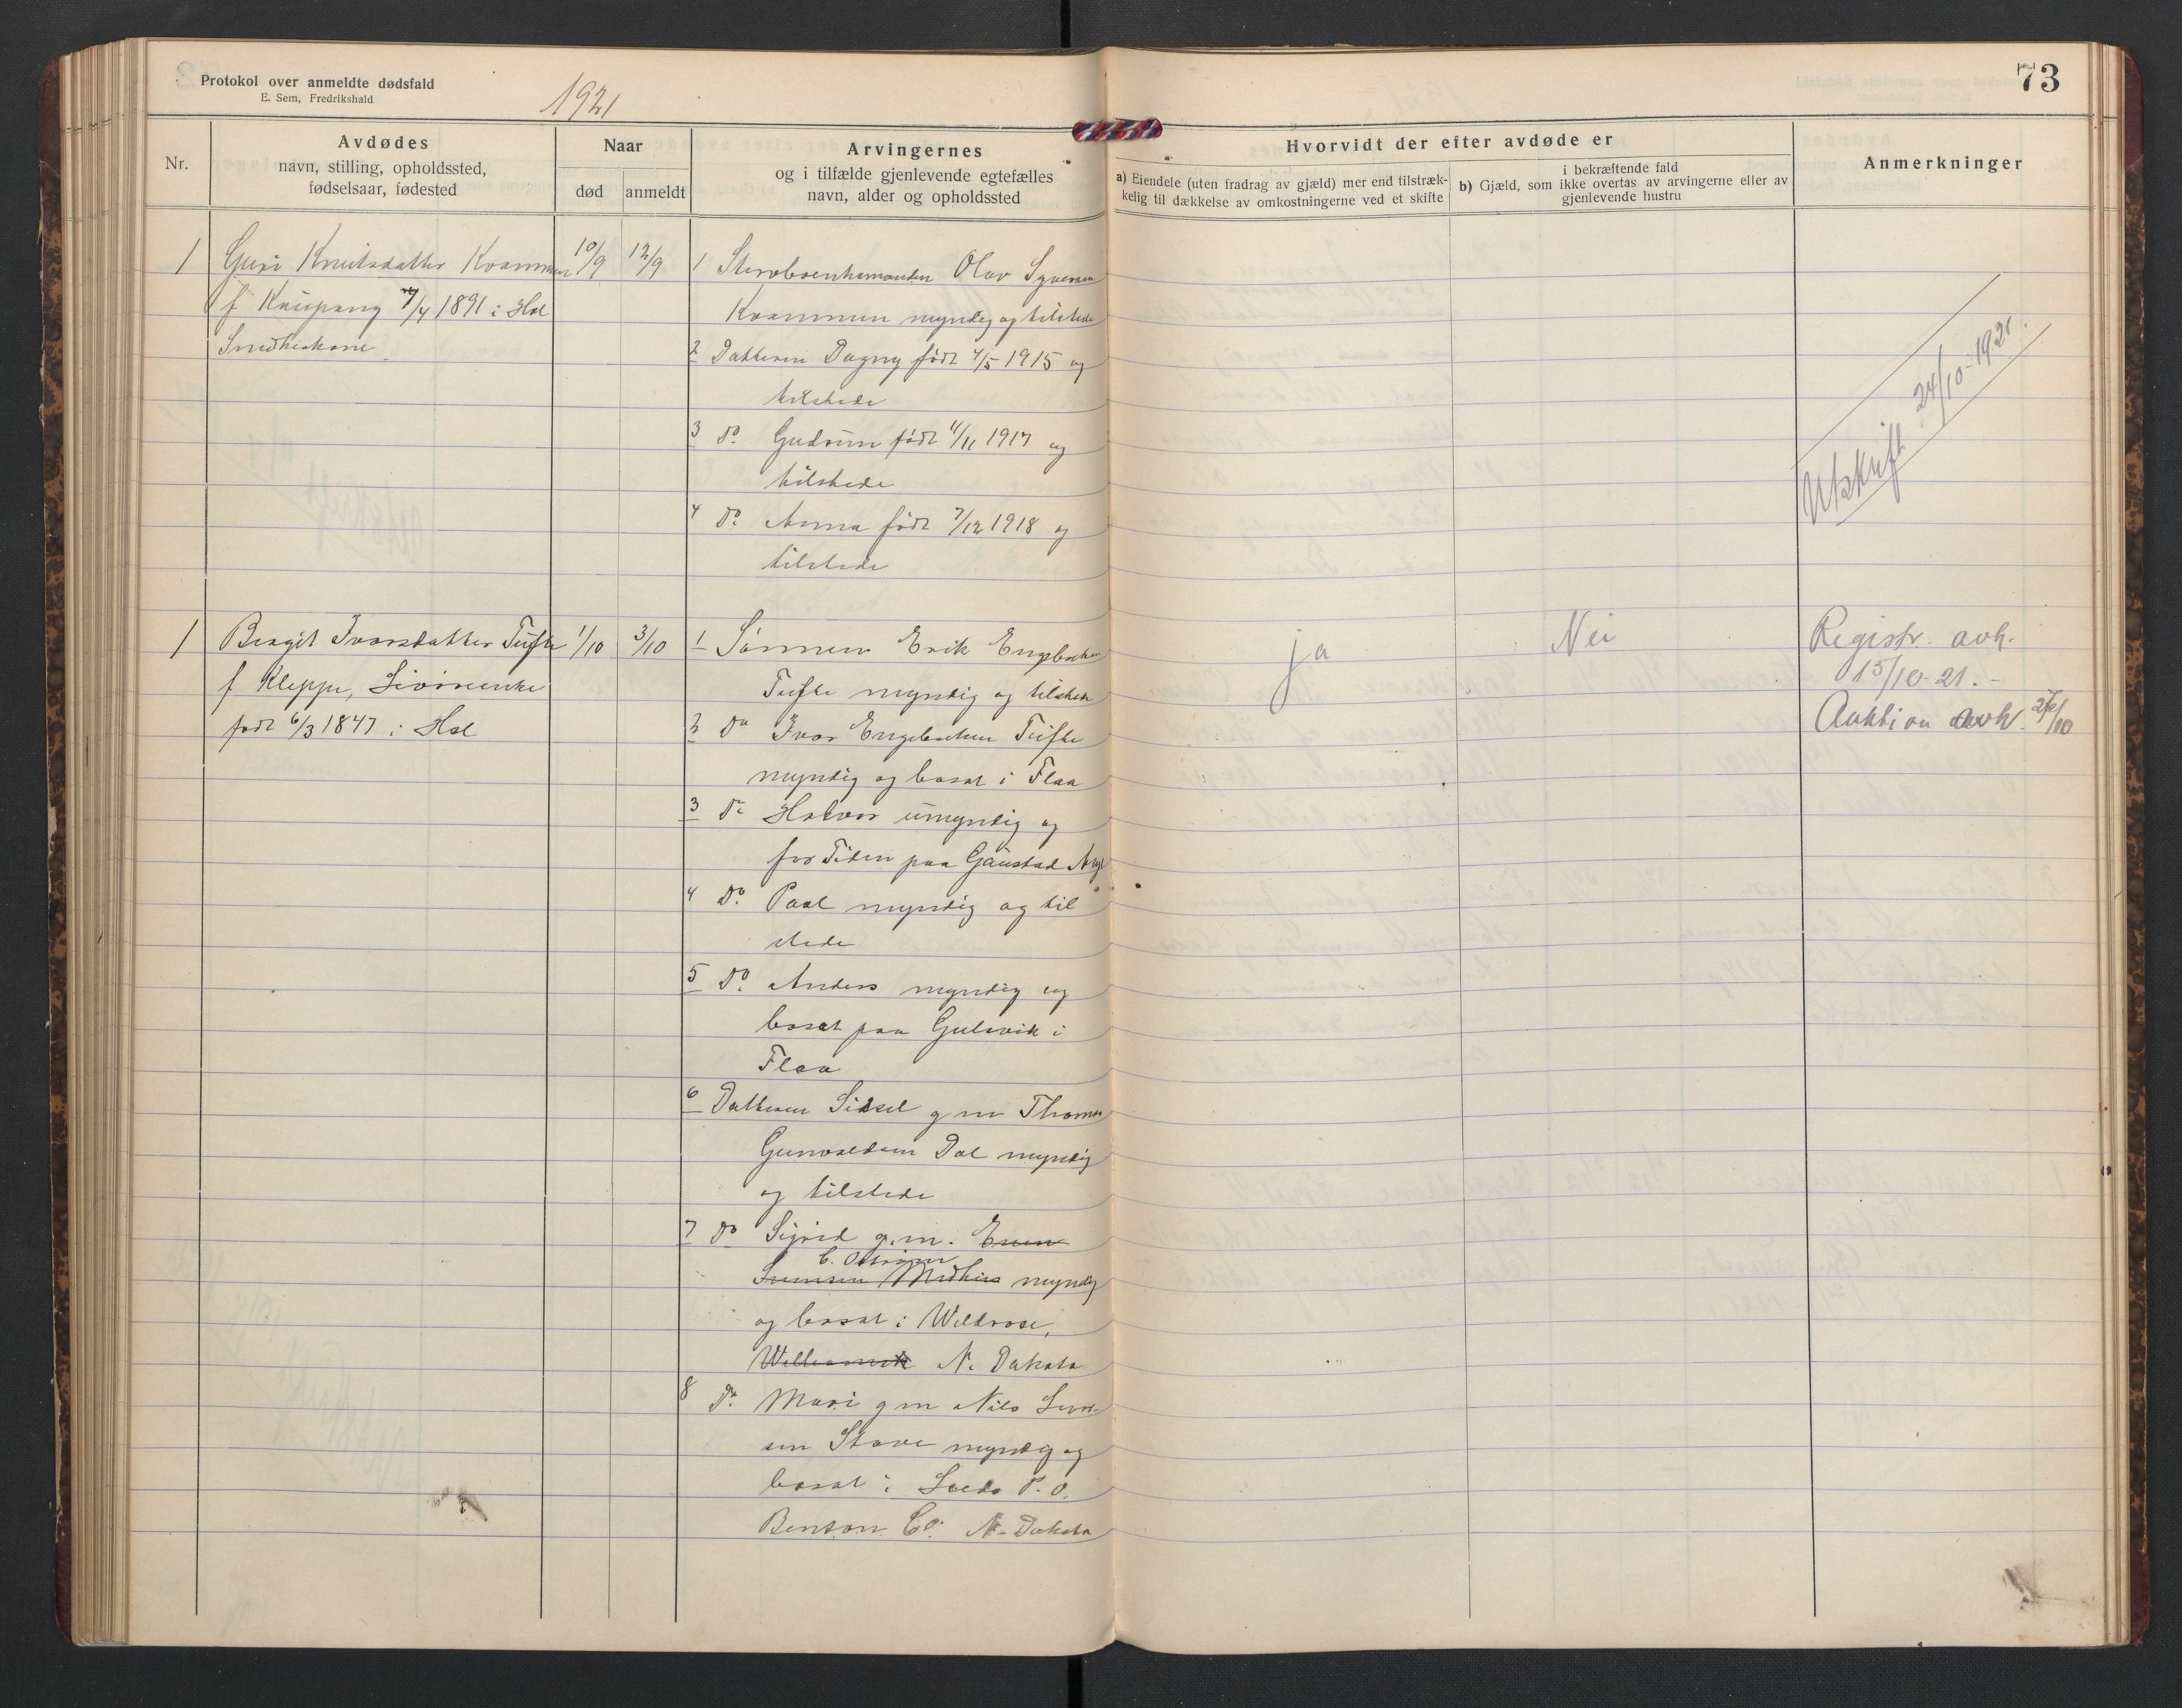 Protokol over anmeldte dødsfald
E. Sem, Fredrikshald
1921
73
Nr.
Avdødes
navn, stilling, opholdssted,
fødselsaar, fødested
Naar
død
anmeldt
Arvingernes
og i tilfælde gjenlevende egtefælles
navn, alder og opholdssted
Hvorvidt der efter avdøde er
a) Eiendele (uten fradrag av gjæld) mer end tilstræk-
kelig til dækkelse av omkostningerne ved et skifte
i bekræftende fald
b) Gjæld, som ikke overtas av arvingerne eller av
gjenlevende hustru
Anmerkninger
1 Guri Knutsdatter Kvammen 10/9 12/9
f Kaupang 7/4 1891 i Hol
1 Olav Syversen
Kvammen myndig og tilstede
2 Datteren Dagny født 4/5 1915 og
tilstede
3 Do. Gudrun født 11/11 1917 og
tilstede
4 Do. Anna født 7/12 1918 og
tilstede
Utskrift 24/10-1921.
1 Birgit Ivarsdatter Tufte 1/10 3/10
f Kleppe,
født 6/3 1847 i Hol
1 Sønnen Erik Engebretsen
Tufte myndig og tilstede
2 Do Ivar Engebretsen Tufte
myndig og bosat i Flaa
3 Do Halvor umyndig og
for Tiden paa Gaustad Asyl
4 Do. Paal myndig og til
stede
5 Do. Anders myndig og
bosat paa Gulsvik i
Flaa
6 Datteren Sidsel g m Thomas
Gunvaldsen Dal myndig
og tilstede
7 Do Sigrid g.m.
myndig
og bosat i Wildrose,
N. Dakota
8 Do. Mari g m Nils
sen Stave myndig og
bosat i Leeds P.O.
Benson Co. N-Dakota
ja
Nei
Registr. avh.
15/10-21.-
Auktion avh. 27/10